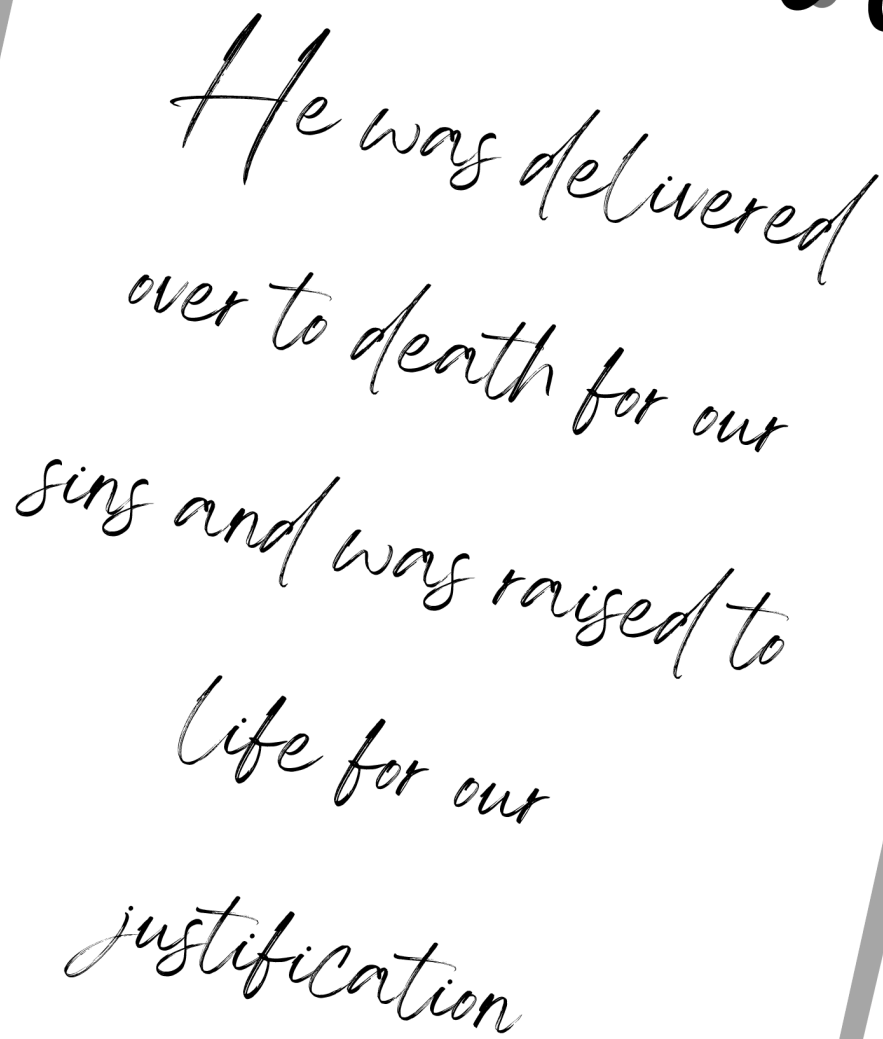 He was delivered
over to death for our
sins and was raised to
life for our
justification